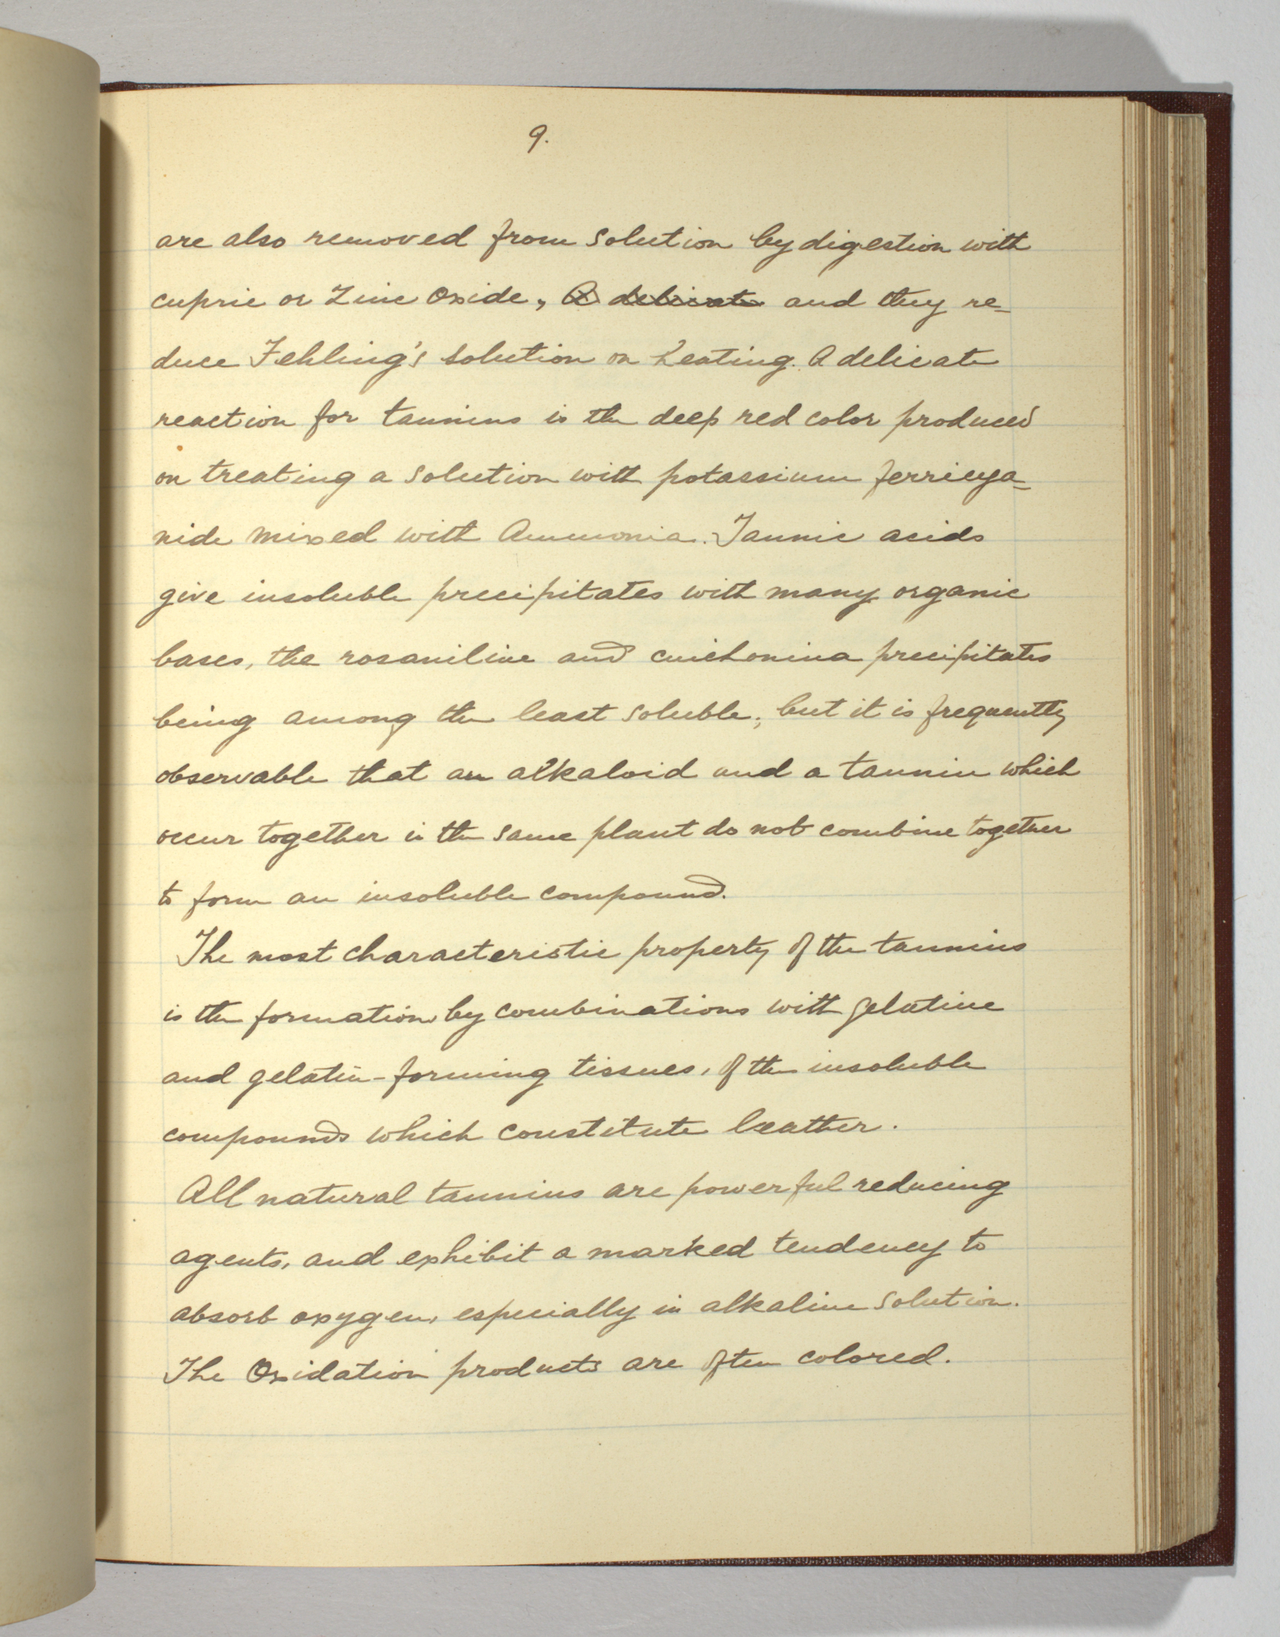 9.
are also removed from solution by digestion with
cupric or Zinc Oxide, A delicate and they re-
duce Fehling's solution on heating. A delicate
reaction for tannins is the deep red color produced
on treating a solution with potassium ferricya-
nide mixed with Ammonia. Tannic acids
give insoluble precipitates with many organic
bases, the rosaniline and cinchonina precipitates
being among the least soluble; but it is frequently
observable that an alkaloid and a tannin which
occur together in the same plant do not combine together
to form an insoluble compound.
The most characteristic property of the tannins
is the formation by combinations with gelatine
and gelatin-forming tissues, of the insoluble
compounds which constitute leather.
All natural tannins are powerful reducing
agents, and exhibit a marked tendency to
absorb oxygen, especially in alkaline solution.
The Oxidation products are often colored.